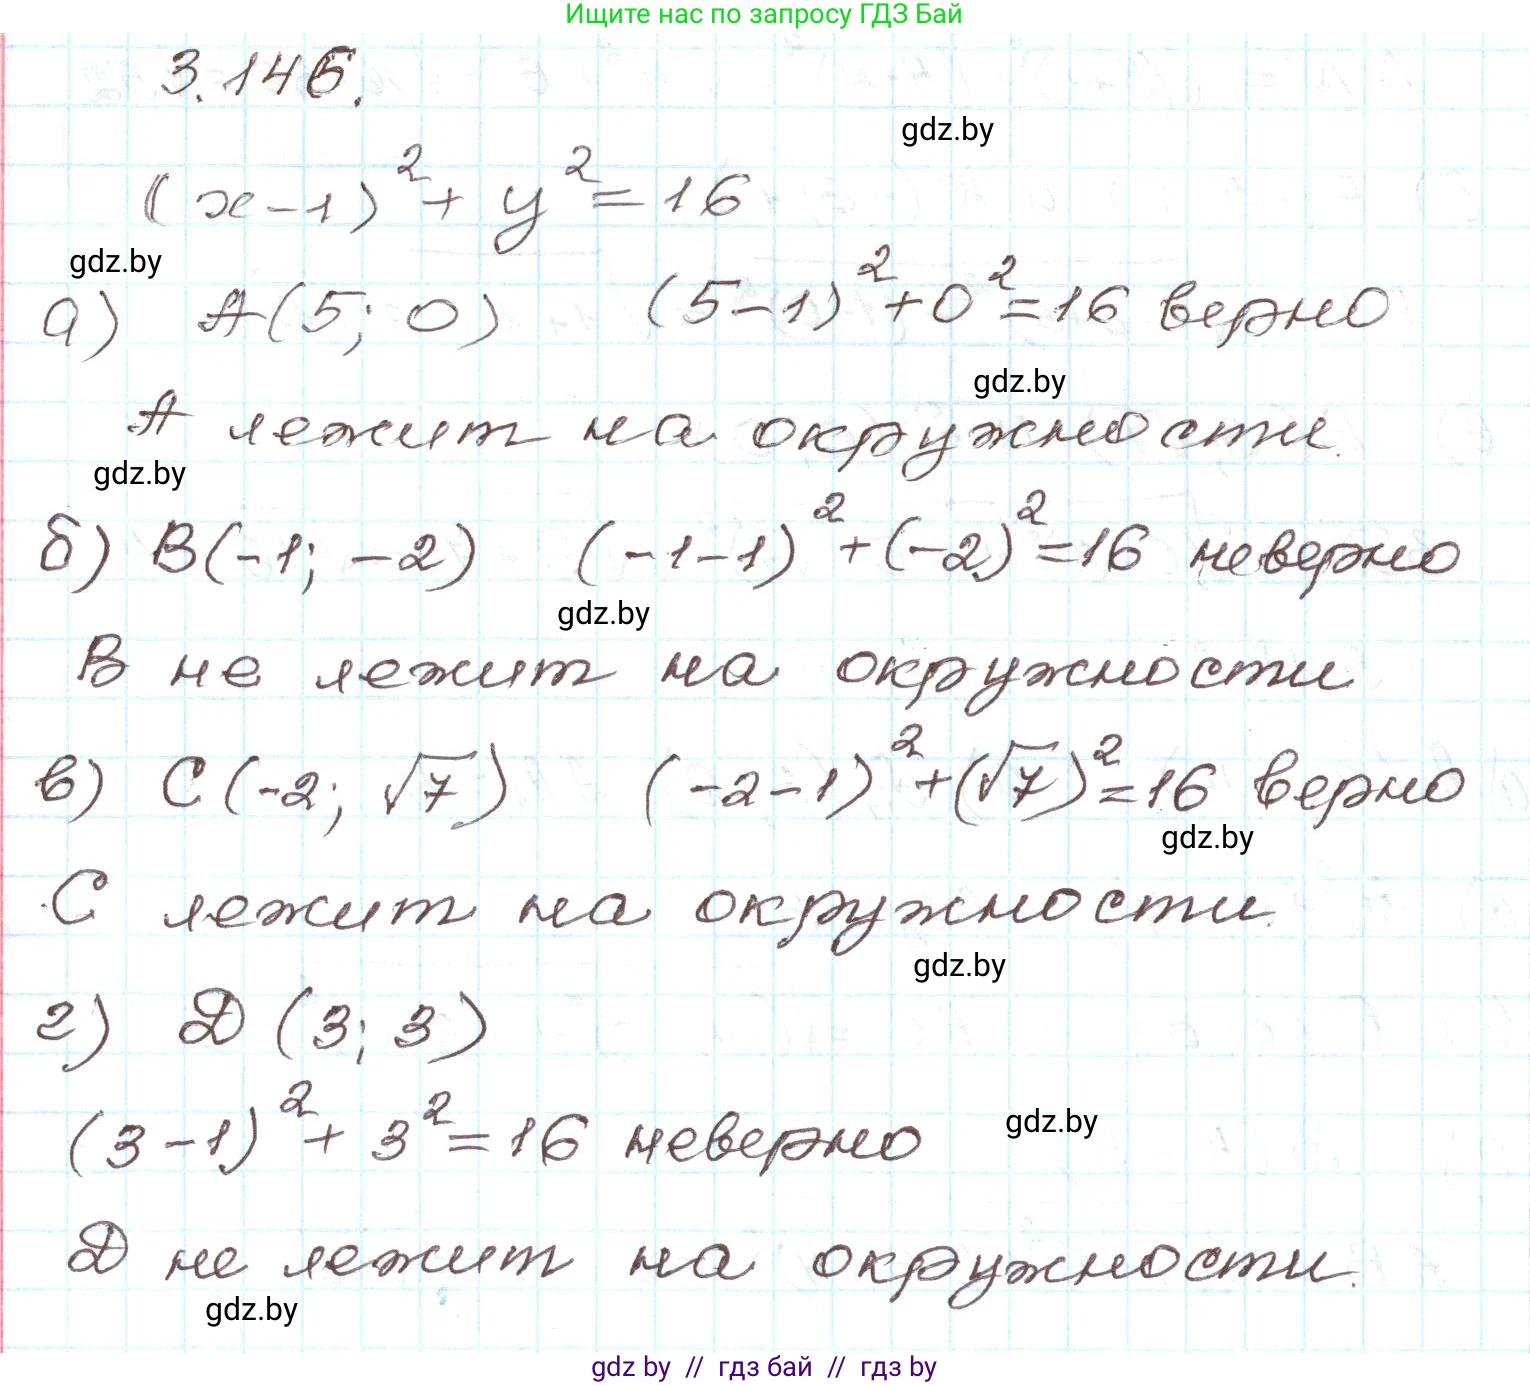 Ищите нас по запросу ГДЗ Бай
3.146.
gdz.by
(x-1)² + y² = 16
gdz.by
а) A(5; 0) (5-1)² + 0² = 16 верно
gdz.by
A лежит на окружности.
gdz.by
б) B(-1; -2) (-1-1)² + (-2)² = 16 неверно
gdz.by
B не лежит на окружности
в) C(-2; √7) (-2-1)² + (√7)² = 16 верно
gdz.by
C лежит на окружности.
gdz.by
г) D (3; 3)
(3-1)² + 3² = 16 неверно
gdz.by
D не лежит на окружности.
gdz.by
gdz by // гдз бай // гдз by